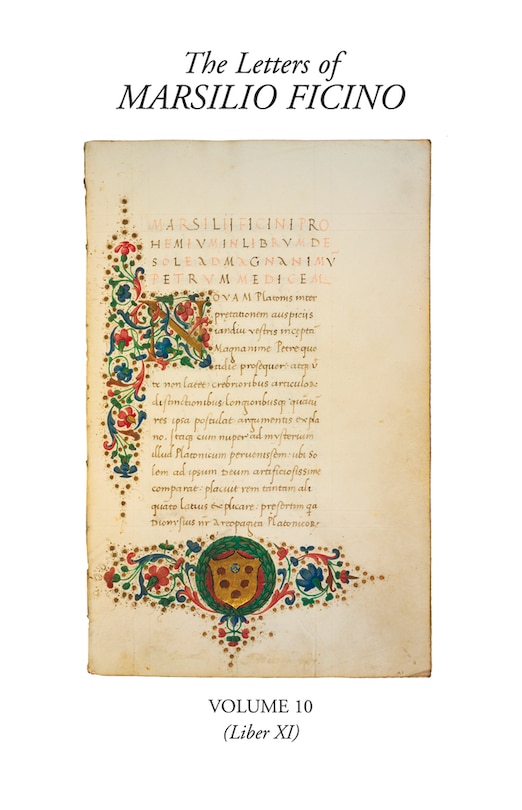 The Letters of
MARSILIO FICINO
MARSILII FICINI PRO
HEMIVM IN LIBRVM DE
SOLE AD MAGNANIMV
PETRVM MEDICEM
NOVAM Platonis inter
pretationem auspiciis
iandiu vestris incepta
Magnanime Petre quo
tidie prosequor: atq ū
te non latet: crebrioribus articulor
distinctionibus longioribusq quātū
res ipsa postulat argumentis expla
no. Itaq cum nuper ad mysterium
illud Platonicum pervenissem: ubi So
lem ad ipsum Deum artificiosissime
comparat: placuit rem tantam ali
quāto latius explicare: presertim qa
Dionysius nr Areopagita Platonicor
VOLUME 10
(Liber XI)